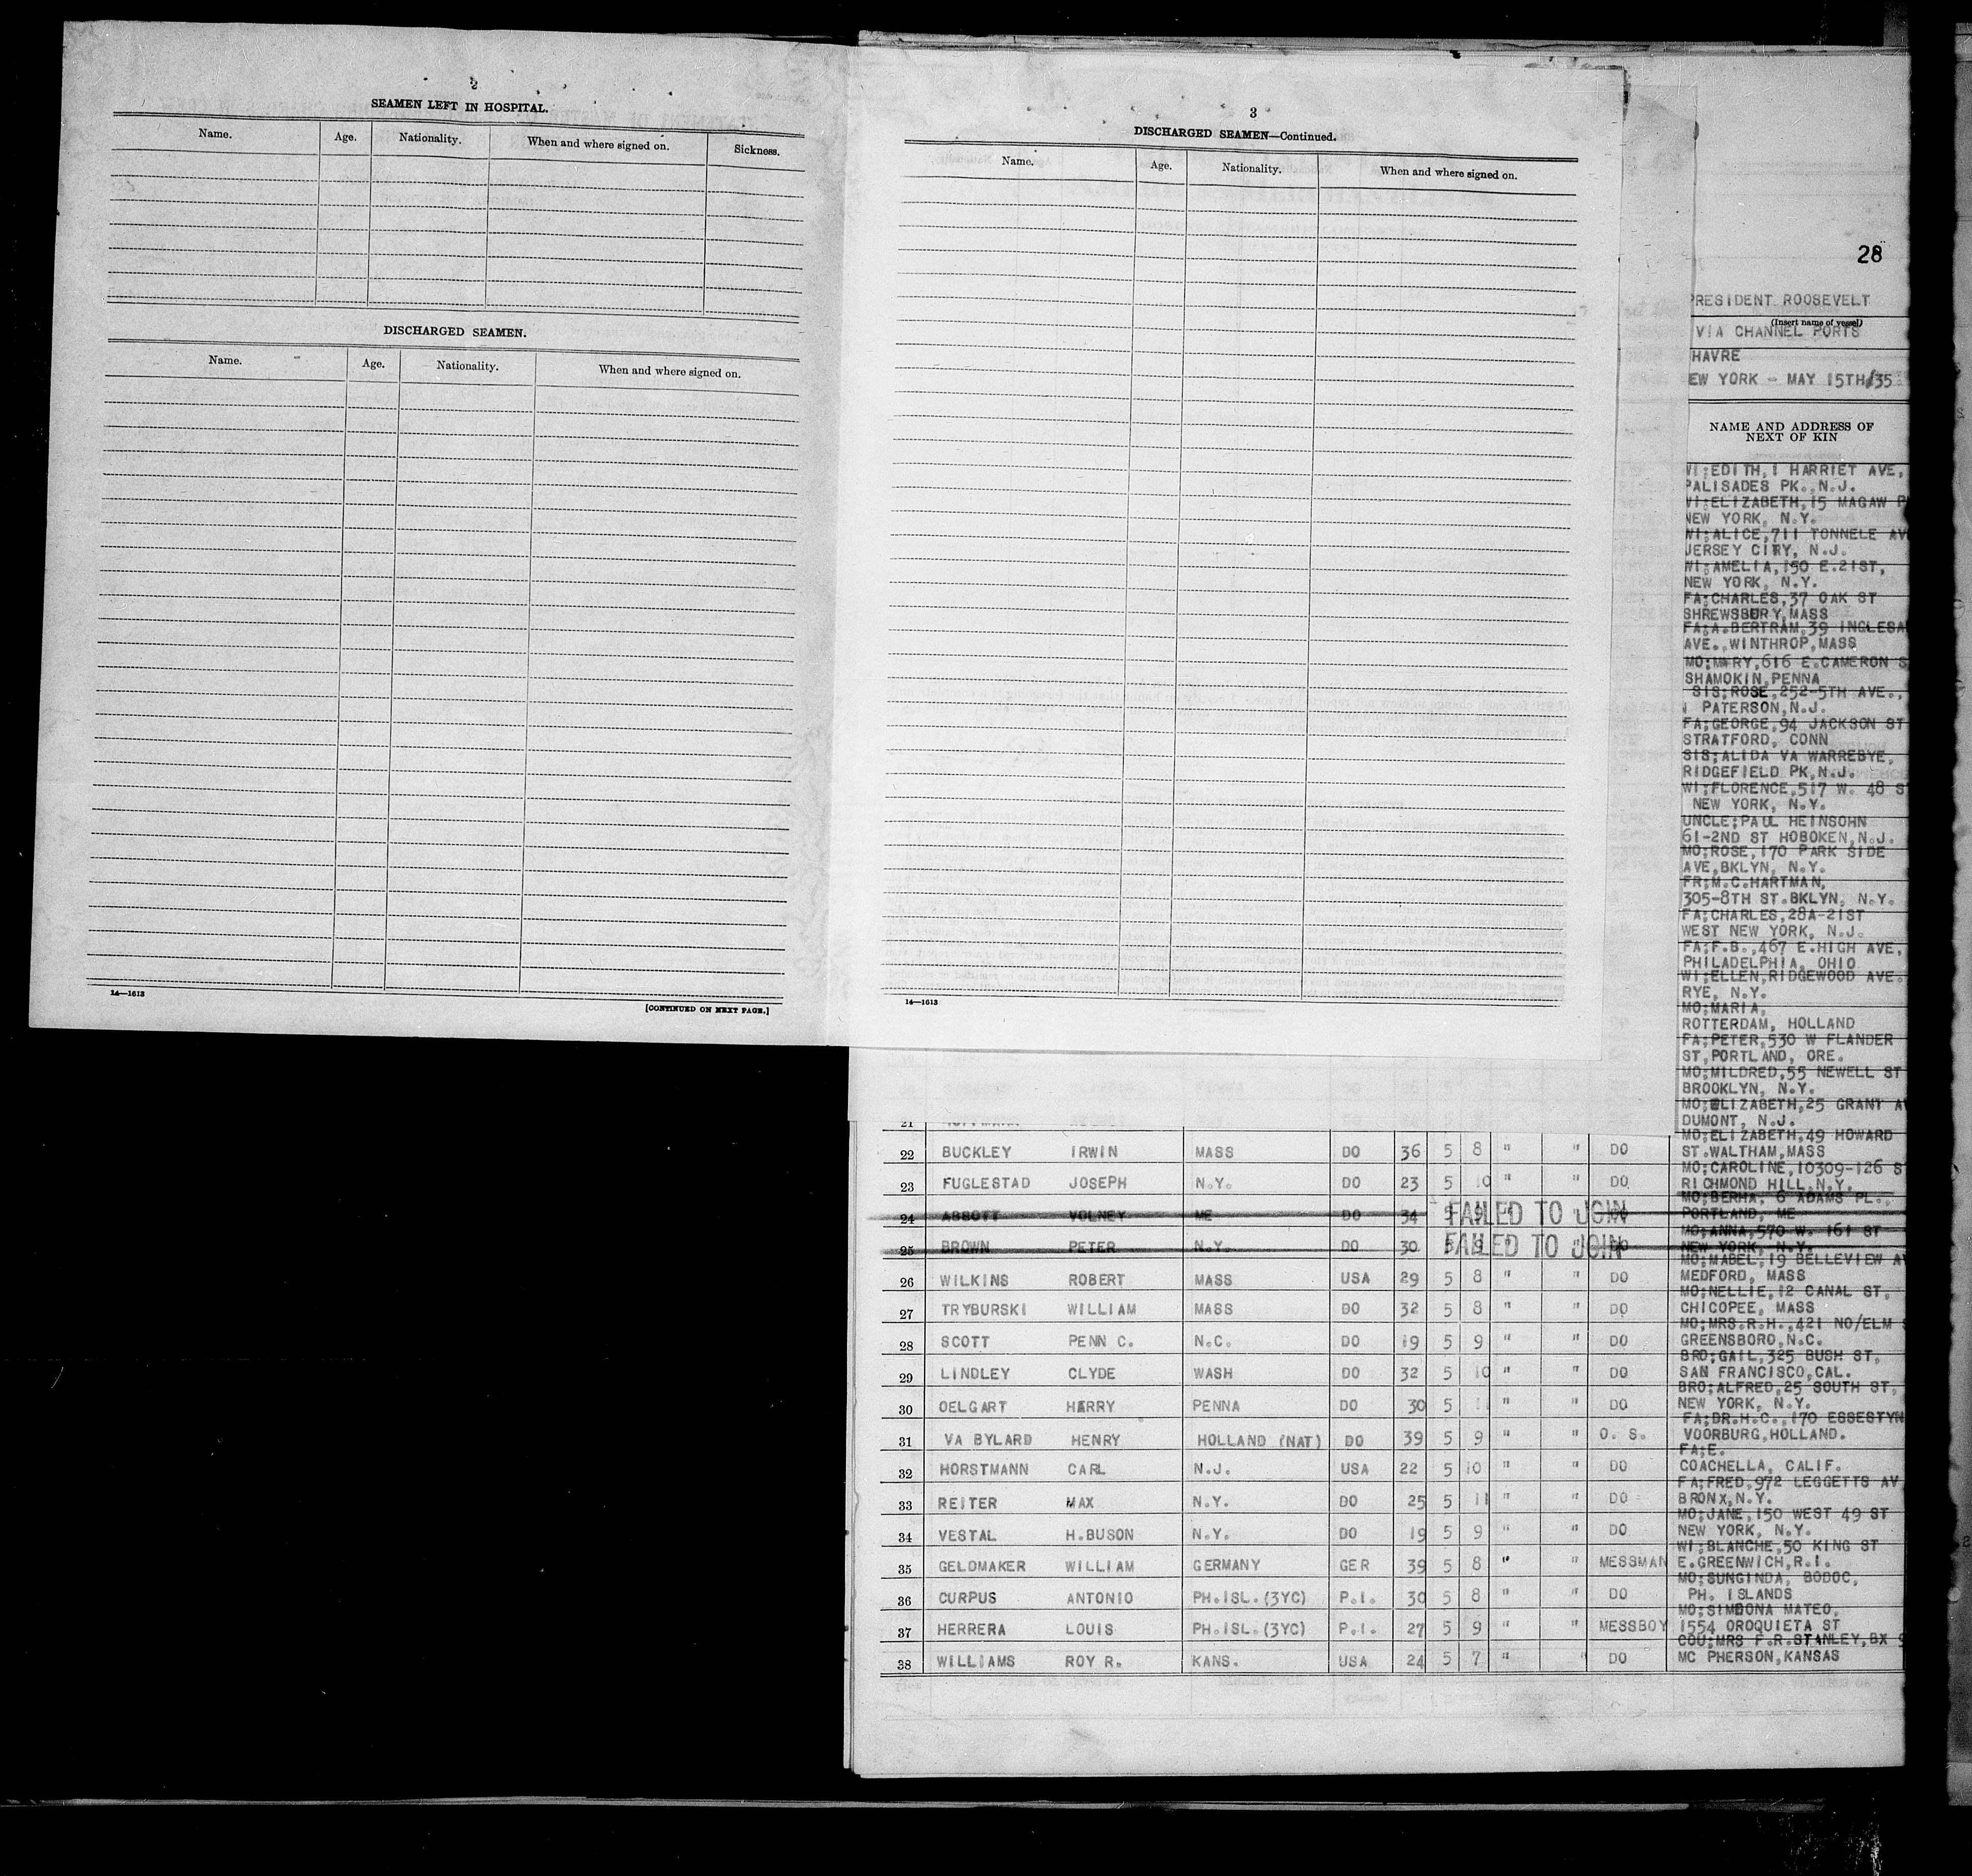 2
SEAMEN LEFT IN HOSPITAL.
Name. Age. Nationality. When and where signed on. Sickness.
DISCHARGED SEAMEN.
Name. Age. Nationality. When and where signed on.
14—1613
[CONTINUED ON NEXT PAGE.]
3
DISCHARGED SEAMEN—Continued.
Name. Age. Nationality. When and where signed on.
14—1613
28
PRESIDENT ROOSEVELT
(Insert name of vessel)
VIA CHANNEL PORTS
HAVRE
EW YORK - MAY 15TH/35
NAME AND ADDRESS OF
NEXT OF KIN
WI;EDITH,1 HARRIET AVE,
PALISADES PK.,N.J.
WI;ELIZABETH,15 MAGAW P
NEW YORK, N.Y.
WI;ALICE,711 TONNELE AV
JERSEY CITY, N.J.
WI;AMELIA,150 E.21ST,
NEW YORK, N.Y.
FA;CHARLES,37 OAK ST
SHREWSBURY,MASS
FA;A.BERTRAM,39 INGLESA
AVE.,WINTHROP,MASS
MO;MARY,616 E.CAMERON S
SHAMOKIN,PENNA
SIS;ROSE,252-5TH AVE.,
PATERSON,N.J.
FA;GEORGE,94 JACKSON ST
STRATFORD, CONN
SIS;ALIDA VA WARREBYE,
RIDGEFIELD PK,N.J.
WI;FLORENCE,517 W. 48 S
NEW YORK, N.Y.
UNCLE;PAUL HEINSOHN
61-2ND ST HOBOKEN,N.J.
MO;ROSE,170 PARK SIDE
AVE,BKLYN, N.Y.
FR;M.C.HARTMAN,
305-8TH ST.BKLYN, N.Y.
FA;CHARLES,28A-21ST
WEST NEW YORK, N.J.
FA;F.B.,467 E.HIGH AVE,
PHILADELPHIA, OHIO
WI;ELLEN,RIDGEWOOD AVE.
RYE, N.Y.
MO;MARIA,
ROTTERDAM, HOLLAND
FA;PETER,530 W FLANDER
ST,PORTLAND, ORE.
MO;MILDRED,55 NEWELL ST
BROOKLYN, N.Y.
MO;ELIZABETH,25 GRANT AV
21 DUMONT, N.J.
MO;ELIZABETH,49 HOWARD
22 BUCKLEY IRWIN MASS DO 36 5 8 " " DO ST.WALTHAM,MASS
MO;CAROLINE,10309-126 S
23 FUGLESTAD JOSEPH N.Y. DO 23 5 10 " " DO RICHMOND HILL,N.Y.
MO;BERHA, 6 ADAMS PL.,
24 ABBOTT VOLNEY ME DO 34 5 9 " " DO FAILED TO JOIN PORTLAND, ME
MO;ANNA,570 W. 161 ST
25 BROWN PETER N.Y. DO 30 5 9 " " DO FAILED TO JOIN NEW YORK, N.Y.
MO;MABEL,19 BELLEVIEW AV
26 WILKINS ROBERT MASS USA 29 5 8 " " DO MEDFORD, MASS
MO;NELLIE,12 CANAL ST,
27 TRYBURSKI WILLIAM MASS DO 32 5 8 " " DO CHICOPEE, MASS
MO;MRS.R.H.,421 NO/ELM S
28 SCOTT PENN C. N.C. DO 19 5 9 " " DO GREENSBORO,N.C.
BRO;GAIL,325 BUSH ST,
29 LINDLEY CLYDE WASH DO 32 5 10 " " DO SAN FRANCISCO,CAL.
BRO;ALFRED,25 SOUTH ST,
30 OELGART HARRY PENNA DO 30 5 11 " " DO NEW YORK, N.Y.
FA;DR.H.C.,170 ESSESTYN
31 VA BYLARD HENRY HOLLAND (NAT) DO 39 5 9 " " O. S. VOORBURG,HOLLAND.
FA;E.
32 HORSTMANN CARL N.J. USA 22 5 10 " " DO COACHELLA, CALIF.
FA;FRED,972 LEGGETTS AV
33 REITER MAX N.Y. DO 25 5 11 " " DO BRONX,N.Y.
MO;JANE,150 WEST 49 ST
34 VESTAL H.BUSON N.Y. DO 19 5 9 " " DO NEW YORK, N.Y.
WI;BLANCHE,50 KING ST
35 GELDMAKER WILLIAM GERMANY GER 39 5 8 " " MESSMAN E.GREENWICH,R.I.
MO;SUNGINDA, BODOC,
36 CURPUS ANTONIO PH.ISL.(3YC) P.I. 30 5 8 " " DO PH. ISLANDS
MO;SIMEONA MATEO,
37 HERRERA LOUIS PH.ISL.(3YC) P.I. 27 5 9 " " MESSBOY 1554 OROQUIETA ST
COU;MRS F.R.STANLEY,BX 9
38 WILLIAMS ROY R. KANS. USA 24 5 7 " " DO MC PHERSON,KANSAS